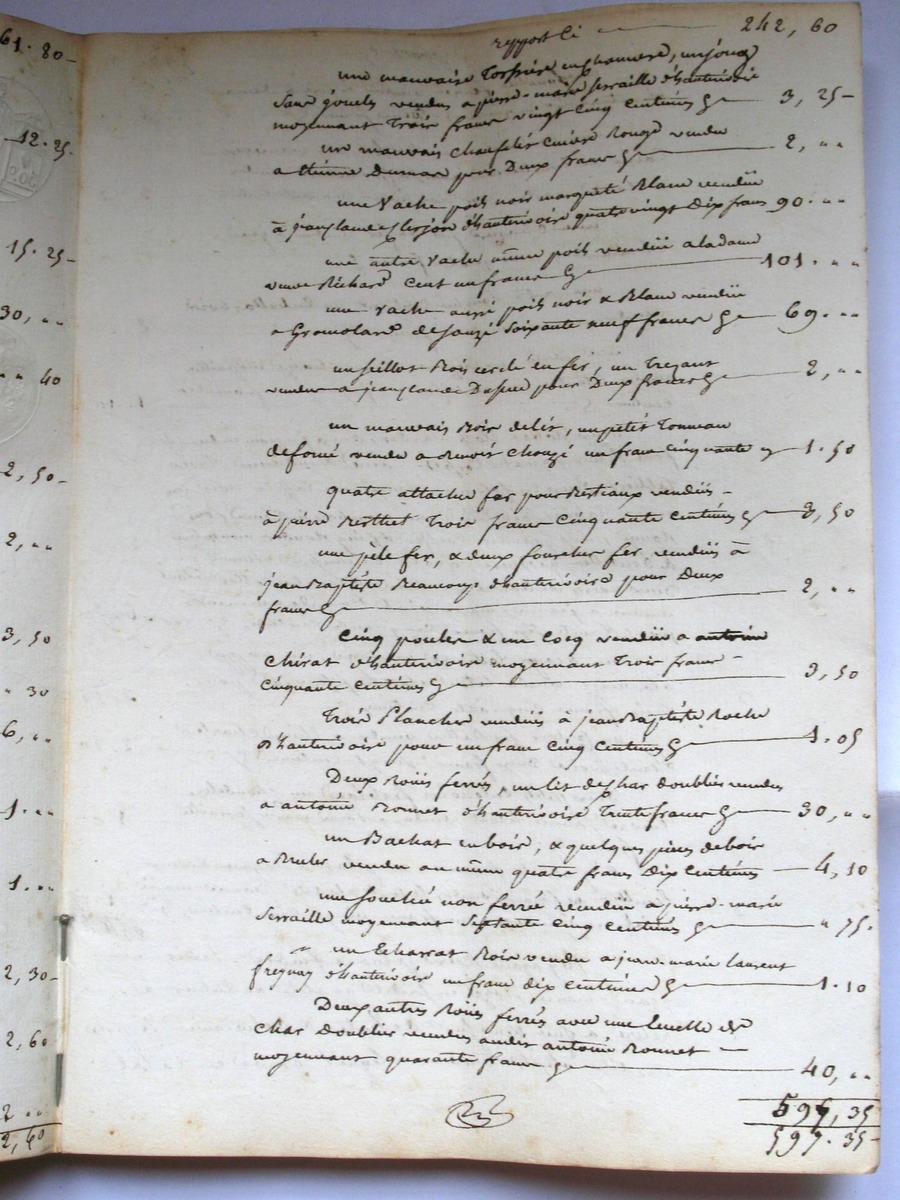 61.80
12.25
15.25
30, „
„ 40
2,50
2, „
3,50
„ 30
6, „
1. „
1. „
2,30
2,60
2 „
2,60
report ci 242,60
une mauvaise en, un joug
sans vendus a pierre-marie Serraille d'hauterivoire
moyennant Trois francs vingt cinq centimes 3,25
un mauvais cuivre Rouge vendu
a étienne Dumas pour Deux francs 2, „
une Vache poil noir marqueté Blanc vendüe
à jean claude d'hauterivoire quatre vingt Dix francs 90. „
une autre vache même poil vendüe a la dame
veuve Richard Cent un francs 101. „
une vache aussi poil noir & Blanc vendüe
a de Souzé Soixante neuf francs 69. „
un seillot Bois cerclé en fer, un Trezant
vendu a jean claude pour Deux francs 2, „
un mauvais Bois de lit, un petit Tonneau
defoncé vendu a Benoit un franc Cinquante 1.50
quatre attaches fer pour Bestiaux vendües
à pierre Berthet Trois francs Cinquante Centimes 3,50
une pèle fer, & deux fourches fer, vendües à
jean Baptiste Beaucoup d'hauterivoire pour Deux
francs 2, „
Cinq poules & un Cocq vendüs a antoine
Chirat d'hauterivoire moyennant Trois francs
Cinquante Centimes 3,50
Trois Planches vendües à jean Baptiste Roche
d'hauterivoire pour un franc Cinq Centimes 1.05
Deux Roües ferrés, un lit de Char doublier vendus
a antoine Bonnet d'hauterivoire Trente francs 30, „
un Bachat en bois, & quelques pièces de bois
a Bruler vendu au même quatre francs Dix Centimes 4,10
une non ferré vendüe a pierre-marie
Serraille moyennant Septante Cinq Centimes „ 75
un Echarrat Bois vendu a jean-marie laurent
d'hauterivoire un franc dix centimes 1.10
Deux autres Roües ferrés avec une de
char doublier vendues audit antoine Bonnet
moyennant quarante francs 40, „
597,35
597.35